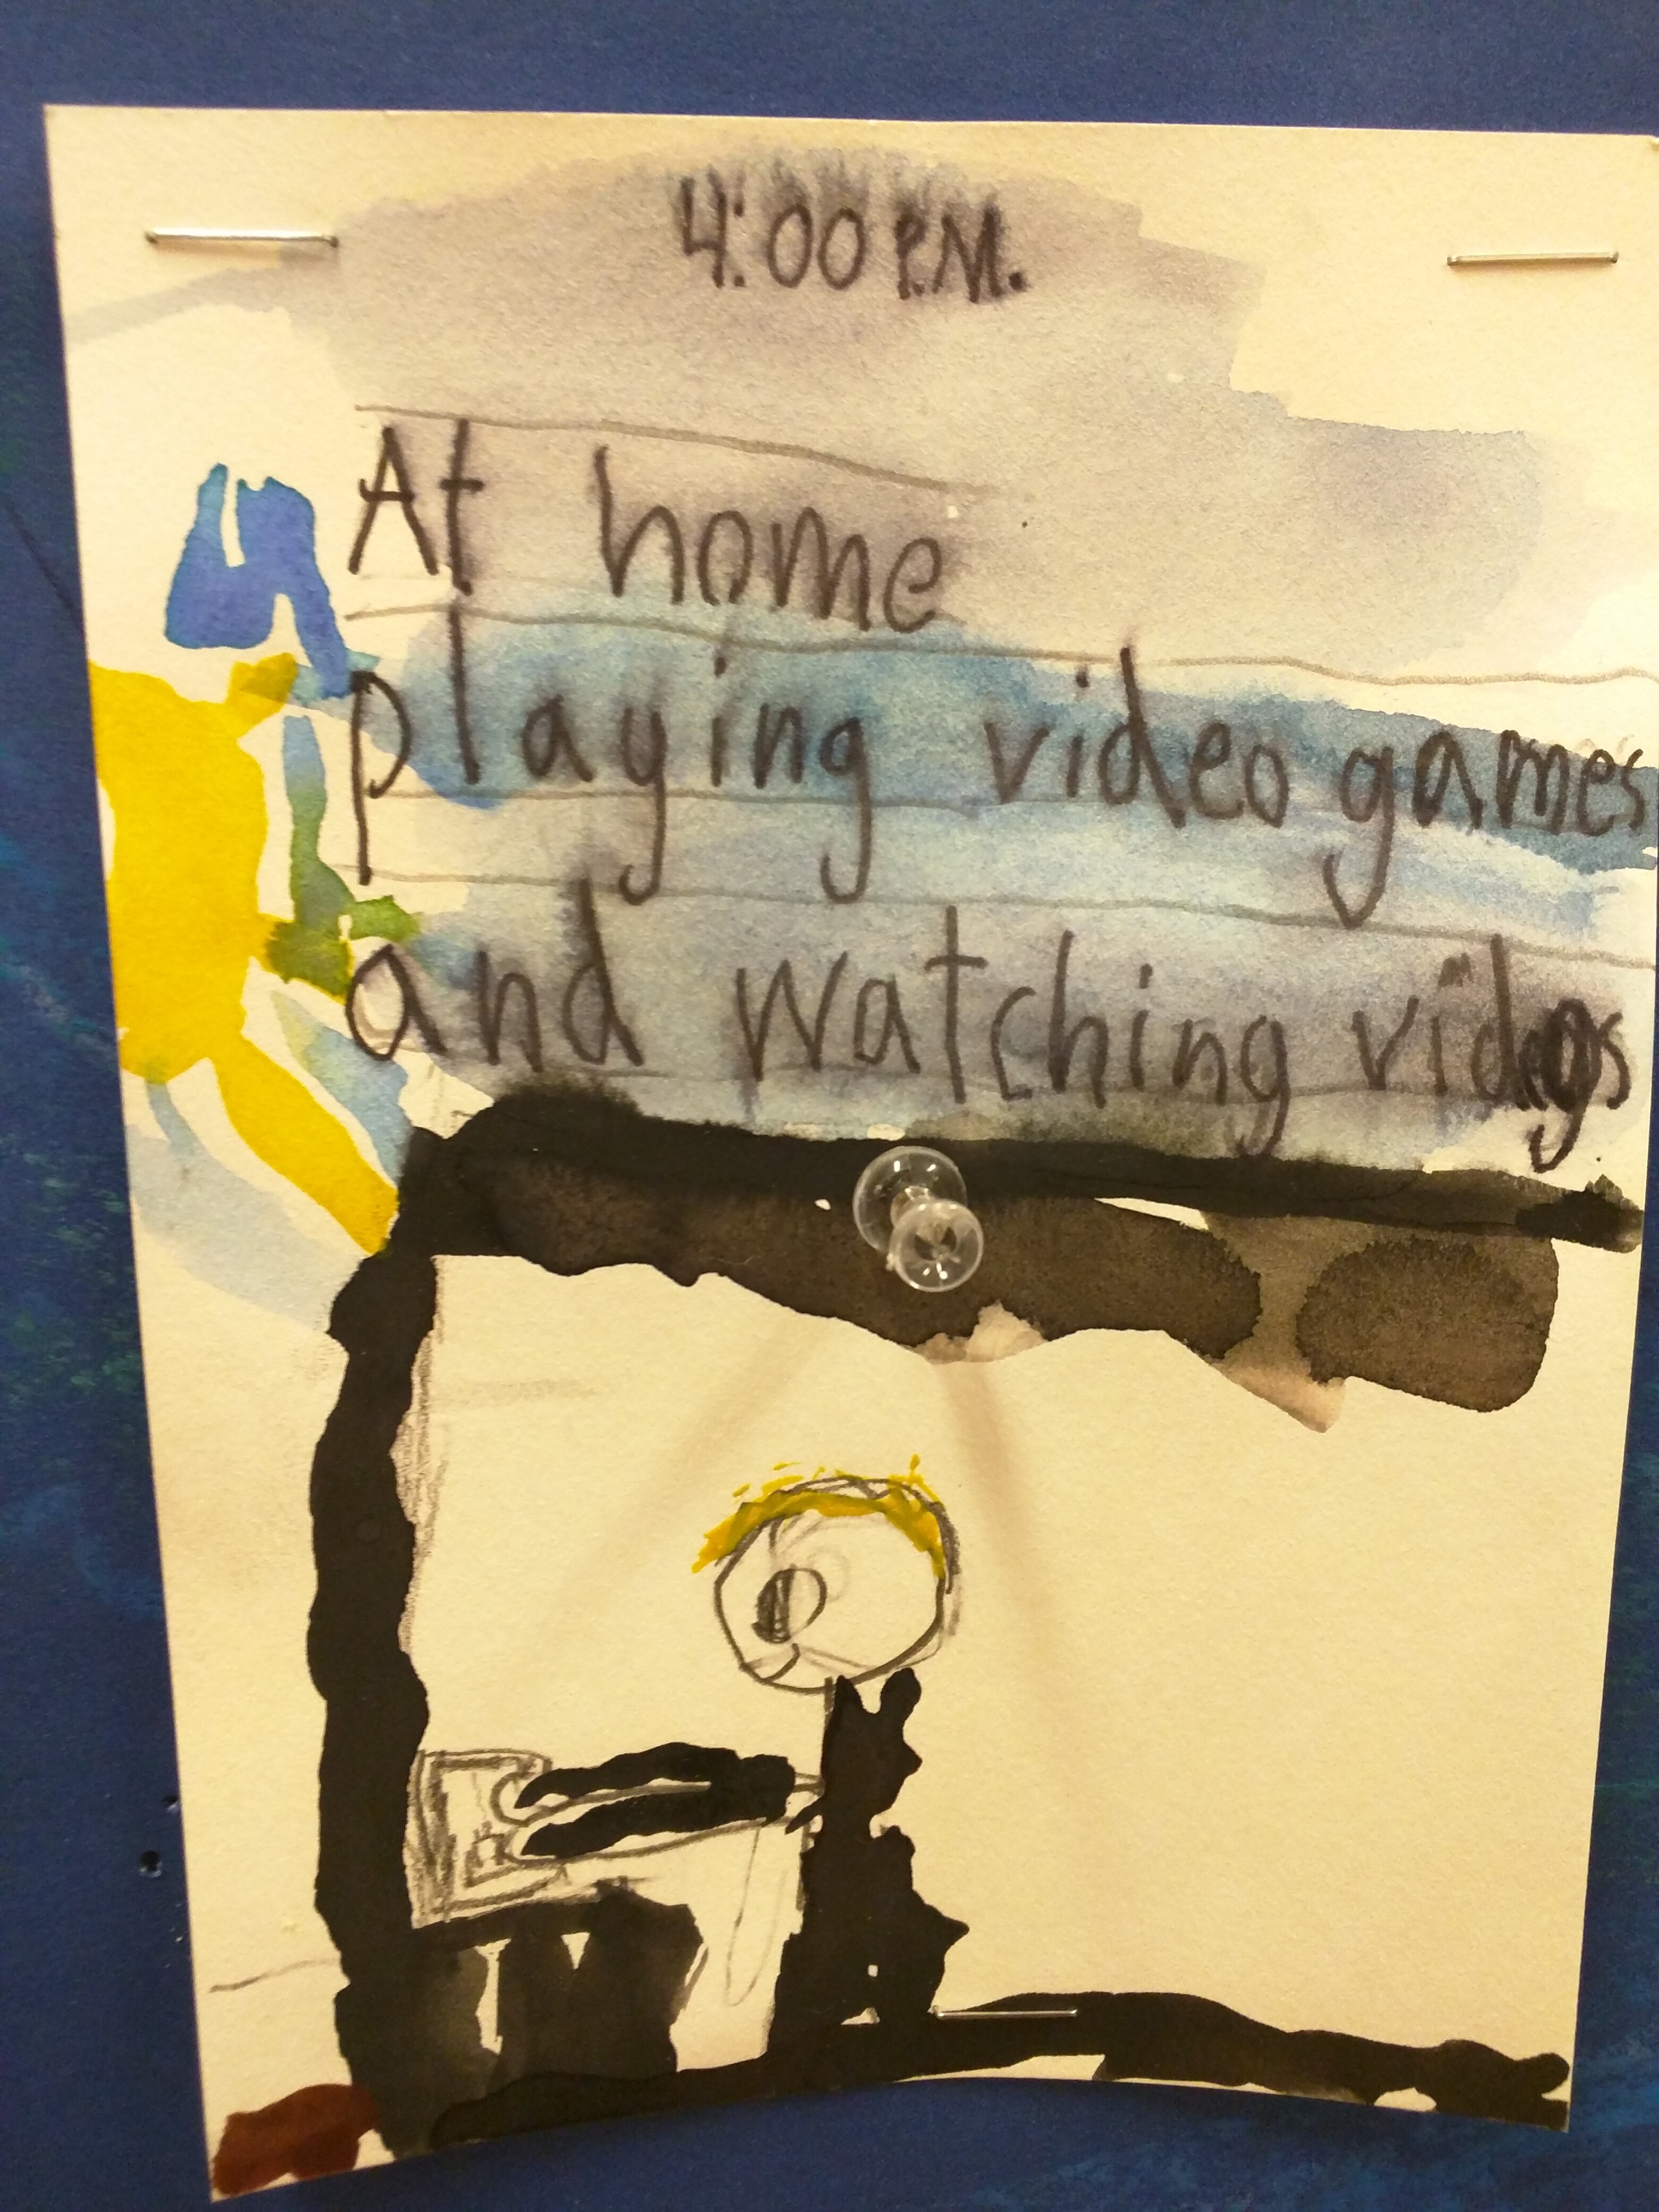 4:00 P.M.
At home
playing video games
and watching videos